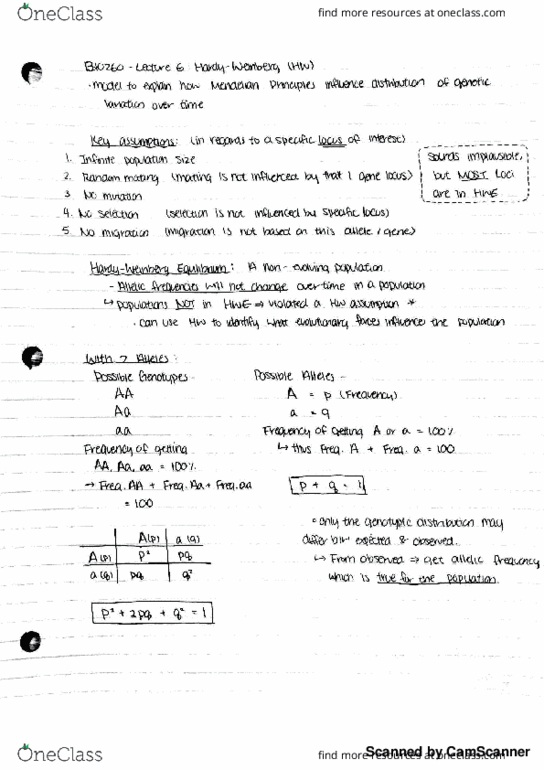 OneClass
find more resources at oneclass.com
BIO260 - Lecture 6 Hardy-Weinberg (HW)
· model to explain how Mendelian Principles influence distribution of genetic
variation over time
Key assumptions: (in regards to a specific locus of interest)
1. Infinite population size
2. Random mating (mating is not influenced by that 1 gene locus)
3. No mutation
4. No selection (selection is not influenced by specific locus)
5. No migration (migration is not based on this allele / gene)
Sounds implausible,
but MOST loci
are in HWE
Hardy-Weinberg Equilibrium: A non-evolving population
- Allelic frequencies will not change over time in a population
↳ populations NOT in HWE ⇒ violated a HW assumption *
· can use HW to identify what evolutionary forces influence the population
With 2 Alleles:
Possible Genotypes -
AA
Aa
aa
Frequency of getting
AA, Aa, aa = 100%
→ Freq. AA + Freq. Aa + Freq. aa
= 100
Possible Alleles -
A = p (Frequency)
a = q
Frequency of getting A or a = 100%
↳ thus Freq. A + Freq. a = 100
p + q = 1
A(p) a(q)
A(p) p² pq
a(q) pq q²
p² + 2pq + q² = 1
* only the genotypic distribution may
differ btw expected & observed.
↳ From observed ⇒ get allelic frequency
which is true for the population.
OneClass
find more resources at oneclass.com
Scanned by CamScanner